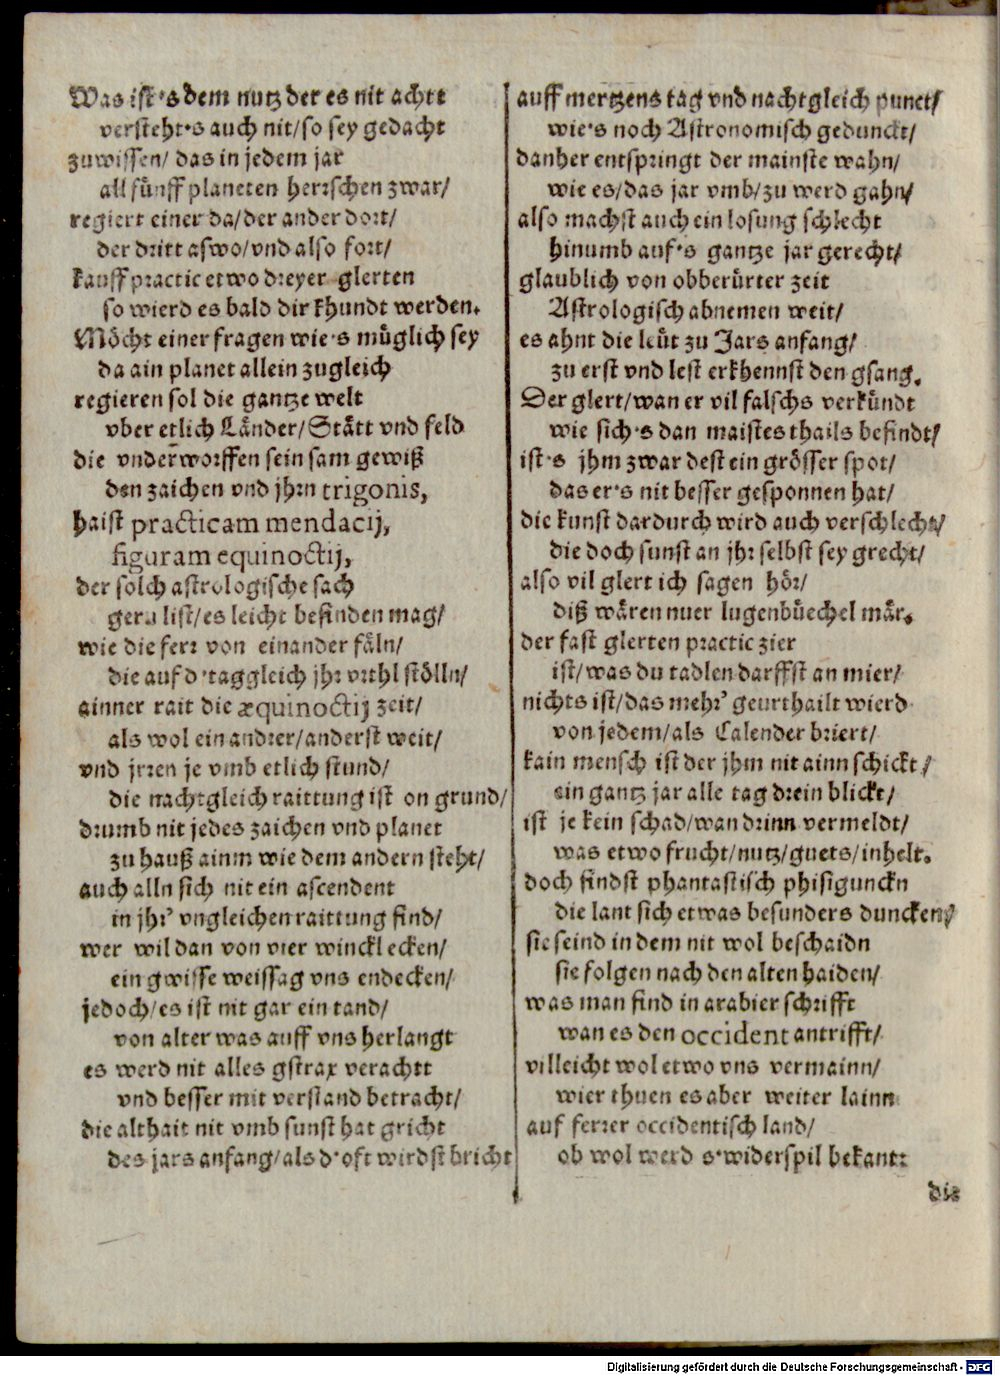 Was ist's dem nutz der es nit achtt
versteht's auch nit/ so sey gedacht
zuwissen/ das in jedem jar
all fünff planeten herrschen zwar/
regiert einer da/ der ander dort/
der dritt aswo/ vnd also fort/
kauff practic etwo dreyer glerten
so wierd es bald dir khundt werden.
Möcht einer fragen wie's müglich sey
da ain planet allein zugleich
regieren sol die gantze welt
vber etlich Länder/ Stätt vnd feld
die vnder̃worffen sein sam gewiß
den zaichen vnd jhrn trigonis,
haist practicam mendacij,
figuram equinoctij,
der solch astrologische sach
gern list/ es leicht befinden mag/
wie die ferr von einander fäln/
die auf d'taggleich jhr vrthl stölln/
ainner rait die æquinoctij zeit/
als wol ein andrer/ anderst weit/
vnd jrren je vmb etlich stund/
die nachtgleich raittung ist on grund/
drumb nit jedes zaichen vnd planet
zu hauß ainm wie dem andern steht/
auch alln sich nit ein ascendent
in jhr' vngleichen raittung find/
wer wil dan von vier winckl ecken/
ein gwisse weissag vns endecken/
jedoch/ es ist nit gar ein tand/
von alter was auff vns herlangt
es werd nit alles gstrax verachtt
vnd besser mit verstand betracht/
die althait nit vmb sunst hat gricht
des jars anfang/ als d'oft wirdst bricht
auff mertzens tag vnd nachtgleich punct/
wie's noch Astronomisch gedunckt/
danher entspringt der mainste wahn/
wie es/ das jar vmb/ zu werd gahn/
also machst auch ein losung schlecht
hinumb auf's gantze jar gerecht/
glaublich von obberürter zeit
Astrologisch abnemen weit/
es ahnt die leüt zu Jars anfang/
zu erst vnd lest erkhennst den gsang.
Der glert/ wan er vil falschs verkündt
wie sich's dan maistes thails befindt/
ist's jhm zwar dest ein grösser spot/
das er's nit besser gesponnen hat/
die kunst dardurch wird auch verschlecht/
die doch sunst an jhr selbst sey grecht/
also vil glert ich sagen hör/
diß wären nuer lugenbüechel mär.
der fast glerten practic zier
ist/ was du tadlen darffst an mier/
nichts ist/ das mehr' geurthailt wierd
von jedem/ als Calender briert/
kain mensch ist der jhm nit ainn schickt/
ein gantz jar alle tag drein blickt/
ist je kein schad/ wan drinn vermeldt/
was etwo frucht/ nutz/ guets/ inhelt.
doch findst phantastisch phisigunckn
die lant sich etwas besunders duncken/
sie seind in dem nit wol beschaidn
sie folgen nach den alten haiden/
was man find in arabier schrifft
wan es den occident antrifft/
villeicht wol etwo vns vermainn/
wier thuen es aber weiter lainn
auf ferrer occidentisch land/
ob wol werd s'widerspil bekant:
die
Digitalisierung gefördert durch die Deutsche Forschungsgemeinschaft - DFG